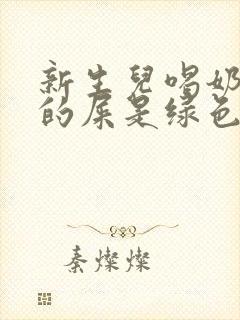 新生兒喝奶
的屎是绿色
秦燦燦